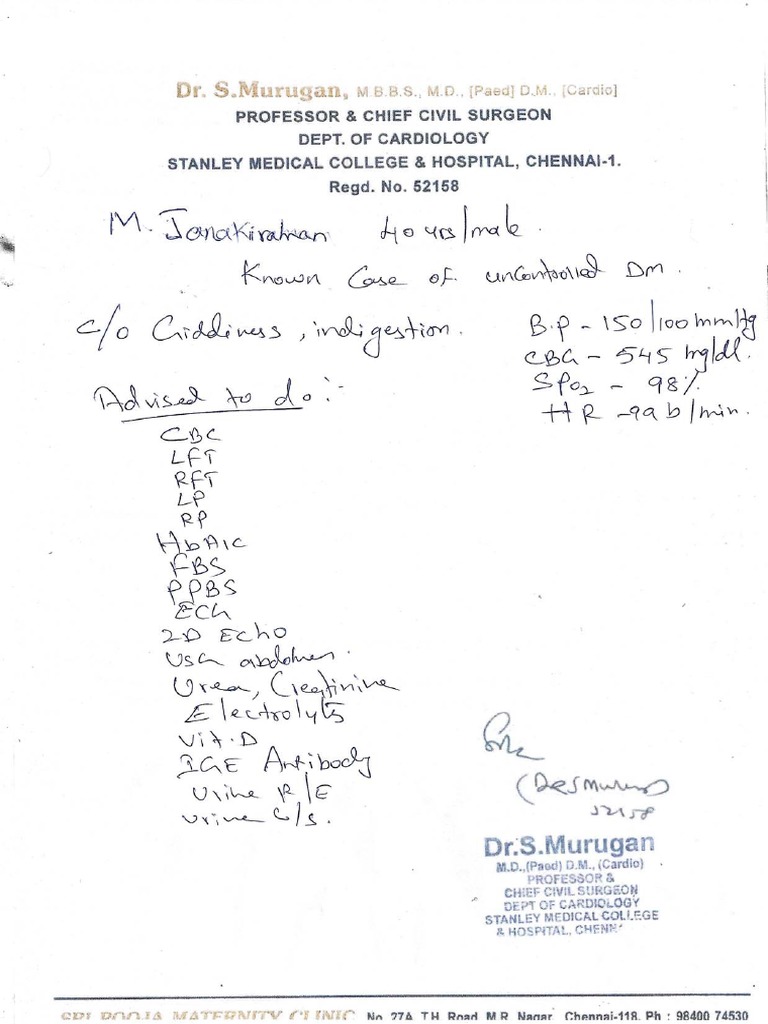 Dr. S.Murugan, M.B.B.S., M.D., [Paed] D.M., [Cardio]
PROFESSOR & CHIEF CIVIL SURGEON
DEPT. OF CARDIOLOGY
STANLEY MEDICAL COLLEGE & HOSPITAL, CHENNAI-1.
Regd. No. 52158
M. Janakiraman 40 yrs/male.
Known Case of uncontrolled DM.
c/o Giddiness, indigestion.
B.P - 150/100 mmHg
CBG - 545 mg/dl.
SPO2 - 98%
HR - 99 b/min.
Advised to do:-
CBC
LFT
RFT
LP
RP
HbA1c
FBS
PPBS
ECG
2D Echo
USG abdomen.
Urea, Creatinine
Electrolyts
Vit.D
IGE Antibody
Urine R/E
Urine C/S.
(Dr S Murugan)
52158
Dr.S.Murugan
M.D.,(Paed) D.M., (Cardio)
PROFESSOR &
CHIEF CIVIL SURGEON
DEPT OF CARDIOLOGY
STANLEY MEDICAL COLLEGE
& HOSPITAL, CHENN
SRI POOJA MATERNITY CLINIC No. 27A, T.H. Road, M.R. Nagar, Chennai-118. Ph : 98400 74530